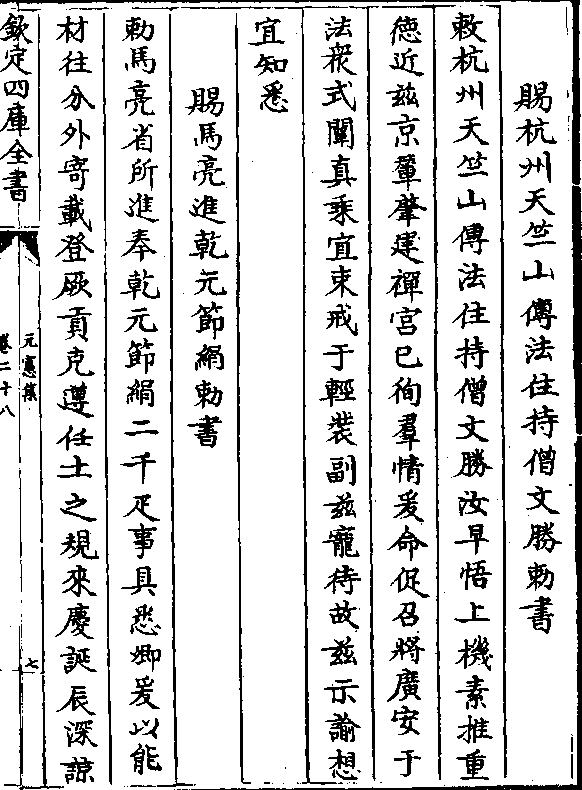 賜杭州天竺山傳法住持僧文勝勅書
敕杭州天竺山傳法住持僧文勝汝早悟上機素推重
德近兹京輦肇建禪宫已徇羣情爰命促召將廣安于
法衆式闡真乘宜束戒于輕裝副兹寵待故兹示諭想
宜知悉
賜馬亮進乾元節絹勅書
勅馬亮省所進奉乾元節絹二千疋事具悉卿爰以能
材往分外寄載登厥貢克遵任土之規來慶誕辰深諒
欽定四庫全書
元憲集
卷二十八
七